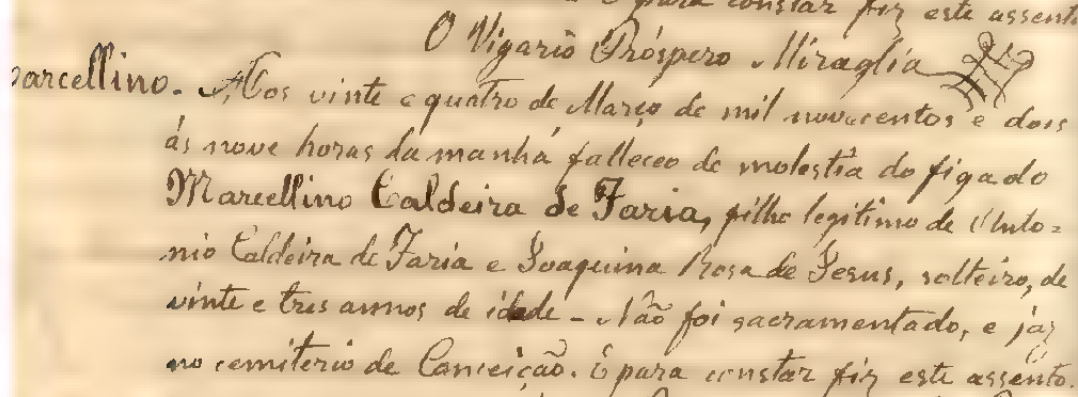 é para constar fiz este assento
O Vigario Próspero Miraglia
Marcellino. Aos vinte e quatro de Março de mil novecentos e dois
ás nove horas da manhã falleceo de molestia do figado
Marcellino Caldeira de Faria, filho legitimo de Anto=
nio Caldeira de Faria e Joaquina Rosa de Jesus, solteiro, de
vinte e tres annos de idade – Não foi sacramentado, e jaz
no cemiterio de Conceição. E para constar fiz este assento.